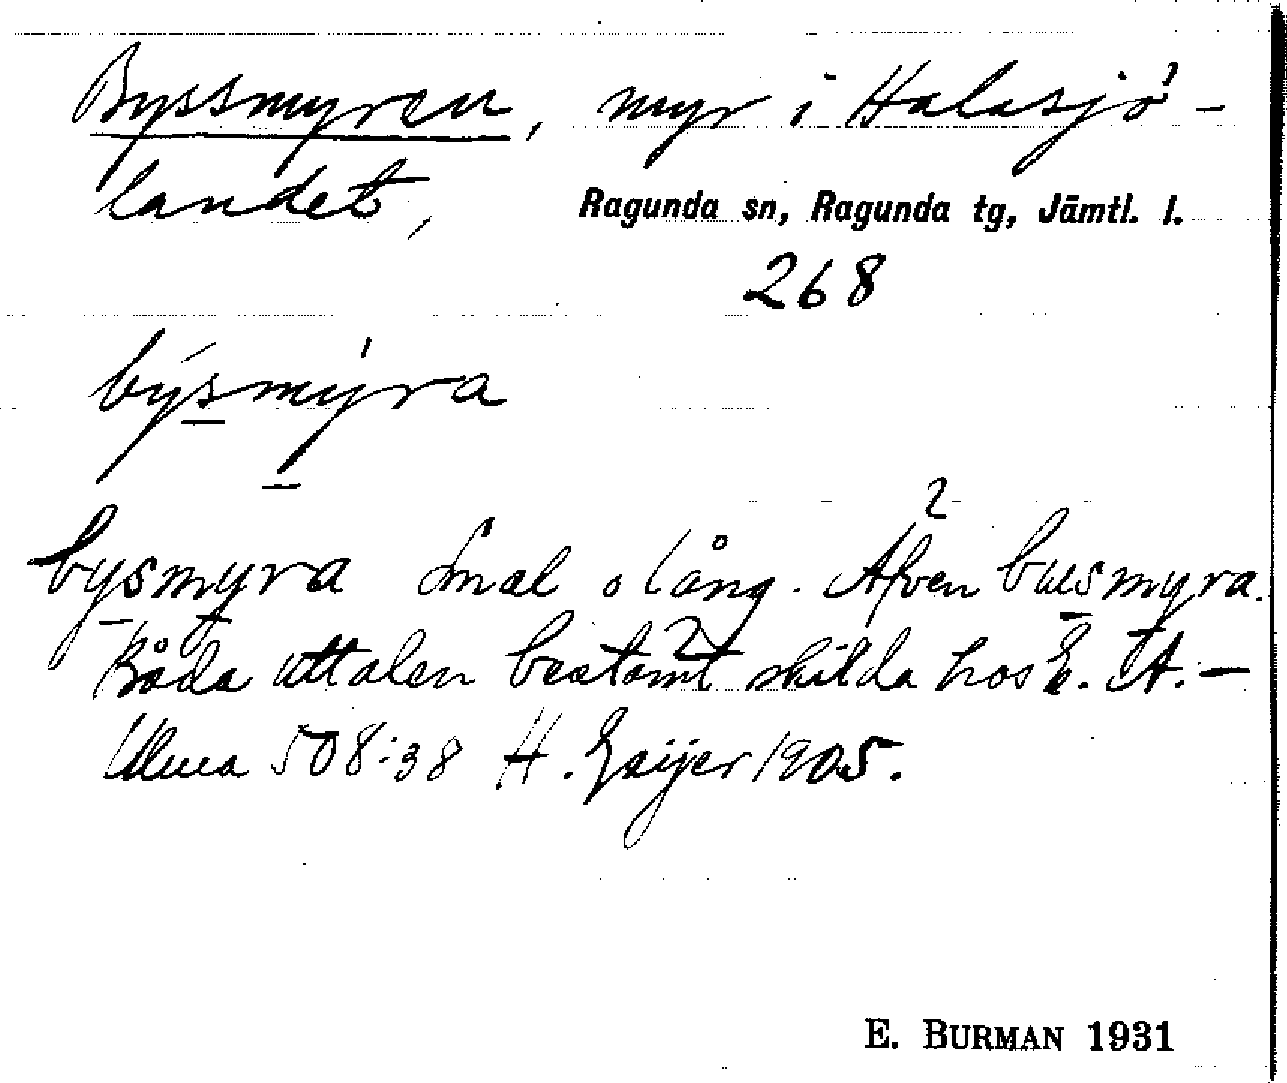 Byssmyren, myr i Halasjö-
landet, Ragunda sn, Ragunda tg, Jämtl. l.
268
býsmýra
bysmyra Smal o lång. Äfven busmyra.
Båda uttalen bestämt skilda hos E. A. –
Ulma 508:38 H. Geijer 1905.
E. BURMAN 1931